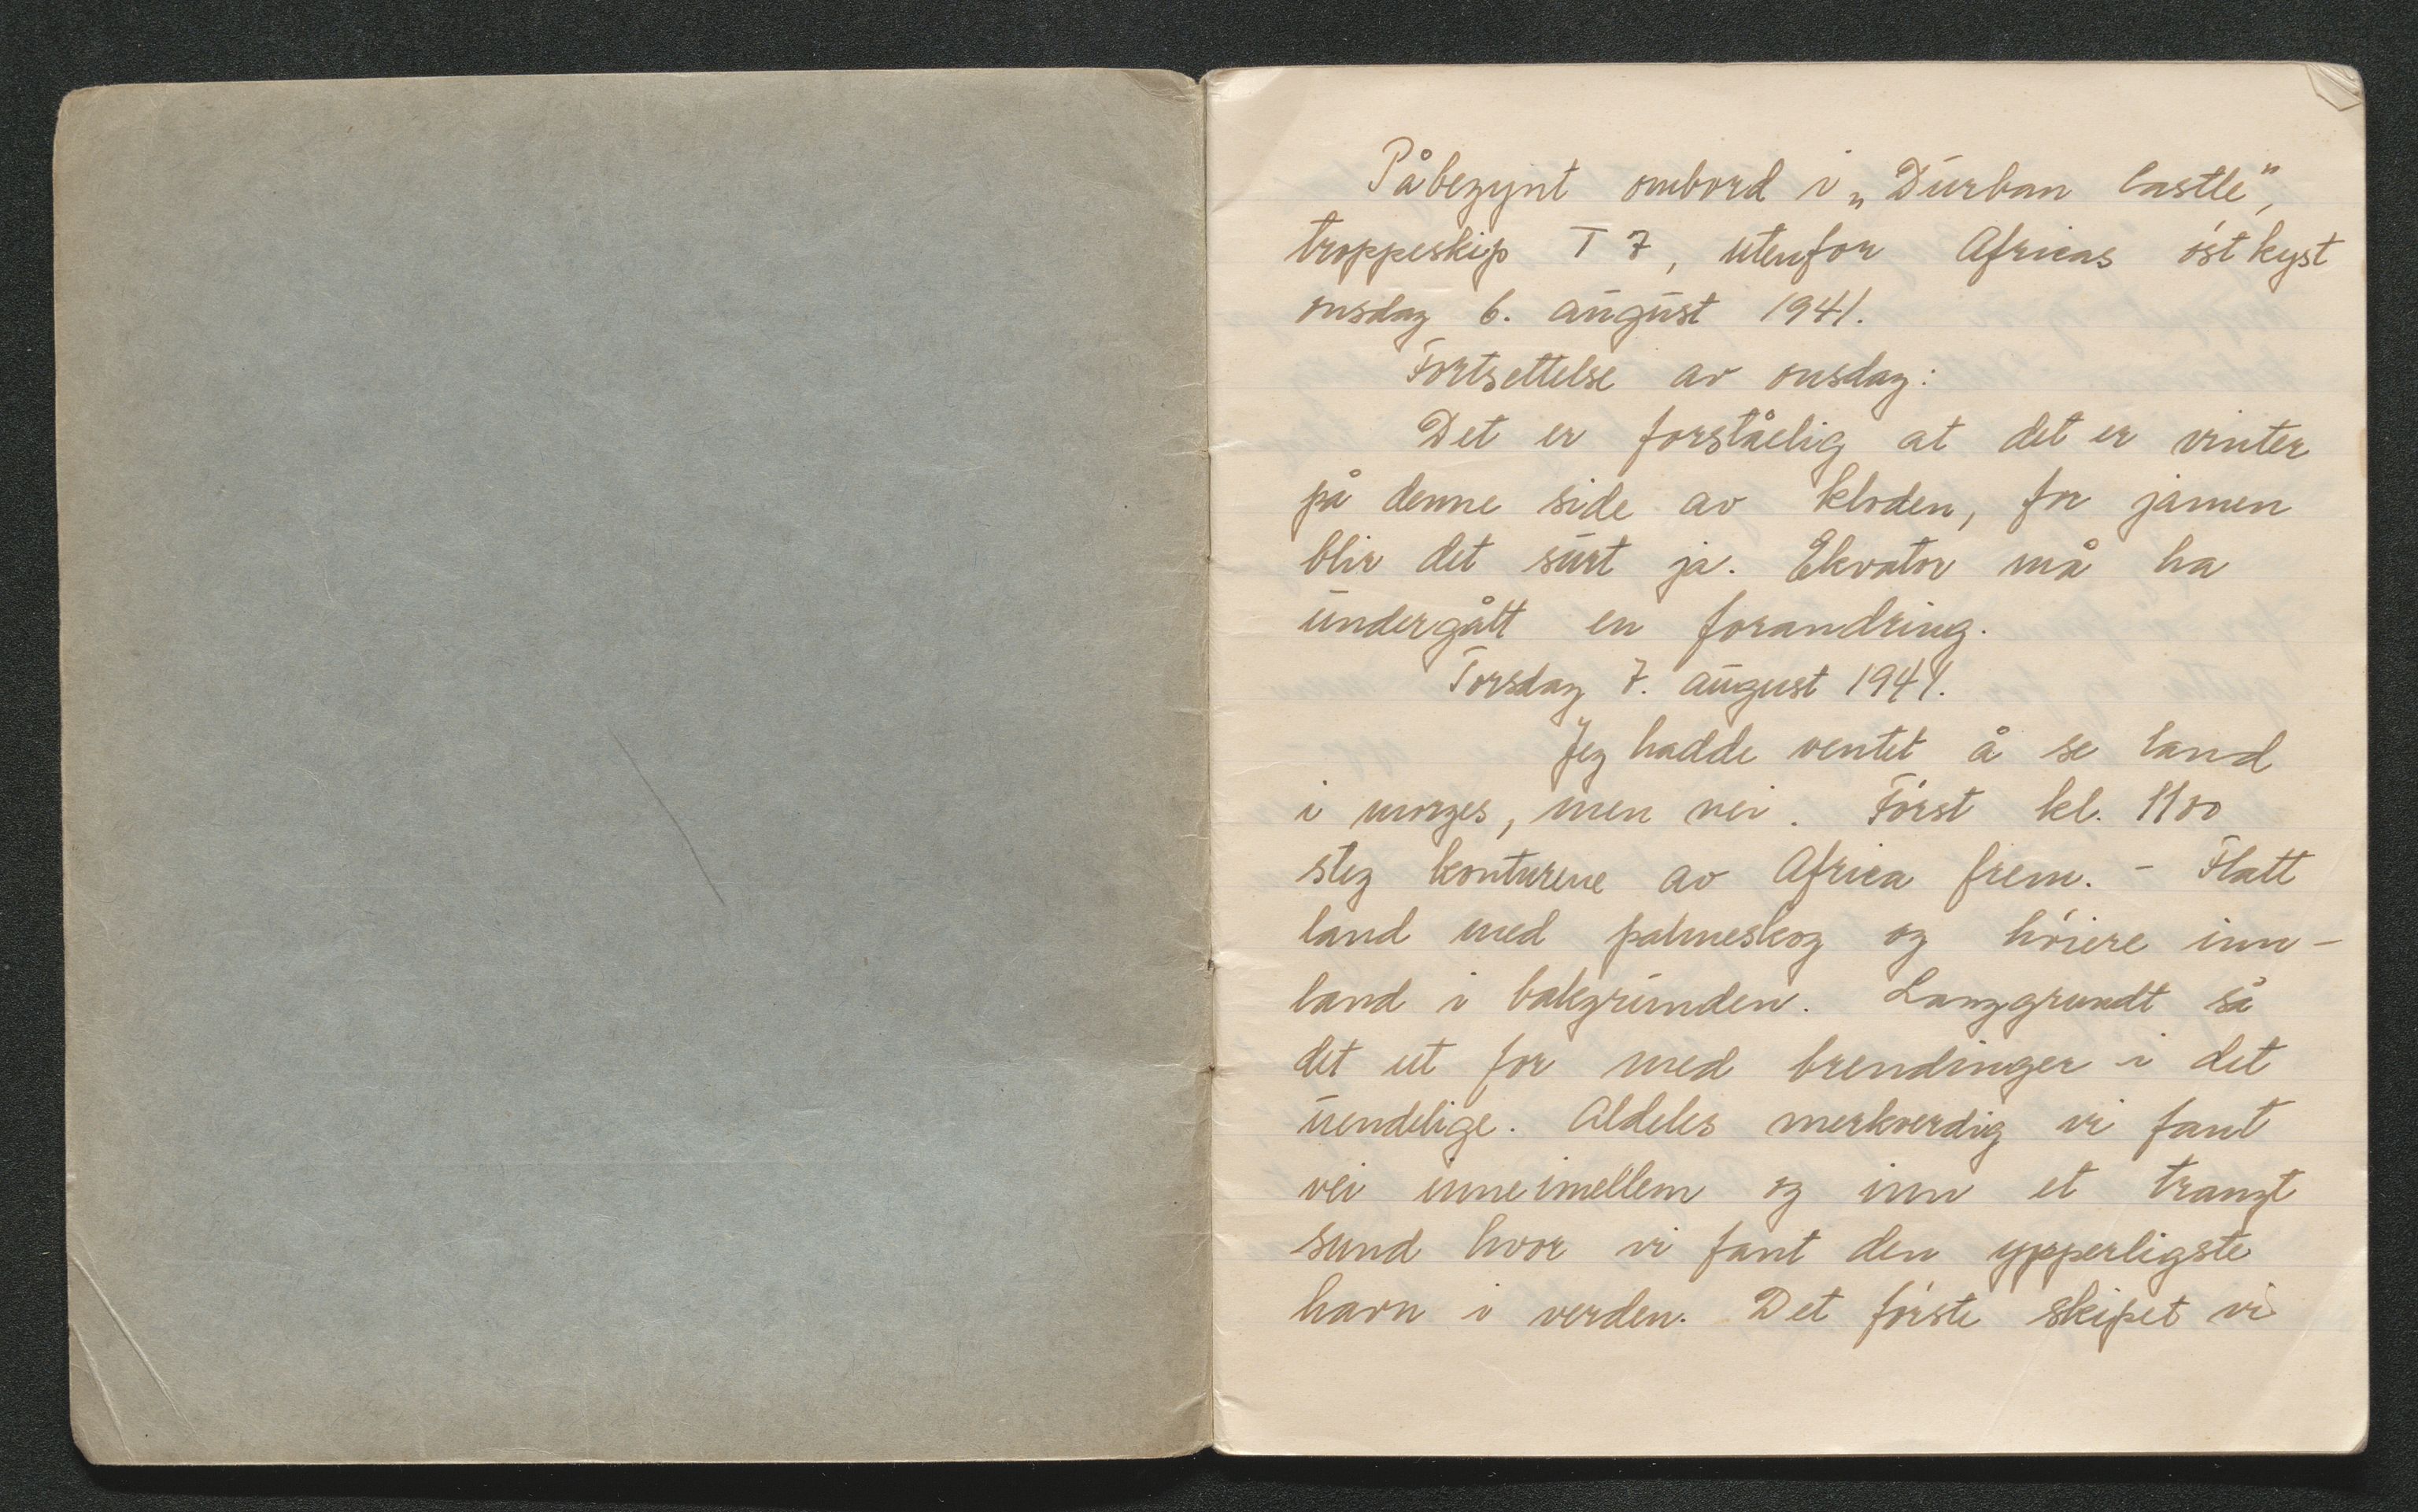 Påbegynt ombord i „Durban Castle”,
troppeskip T 7, utenfor Africas østkyst
onsdag 6. august 1941.
Fortsettelse av onsdag:
Det er forståelig at det er vinter
på denne side av kloden, for jamen
blir det surt ja. Ekvator må ha
undergått en forandring.
Torsdag 7. august 1941.
Jeg hadde ventet å se land
i morges, men nei. Først kl. 1100
steg konturene av Africa frem. - Flatt
land med palmeskog og høiere inn-
land i bakgrunden. Langgrundt så
det ut for med brendinger i det
uendelige. Aldeles merkverdig vi fant
vei inneimellem og inn et trangt
sund hvor vi fant den ypperligste
havn i verden. Det første skipet vi